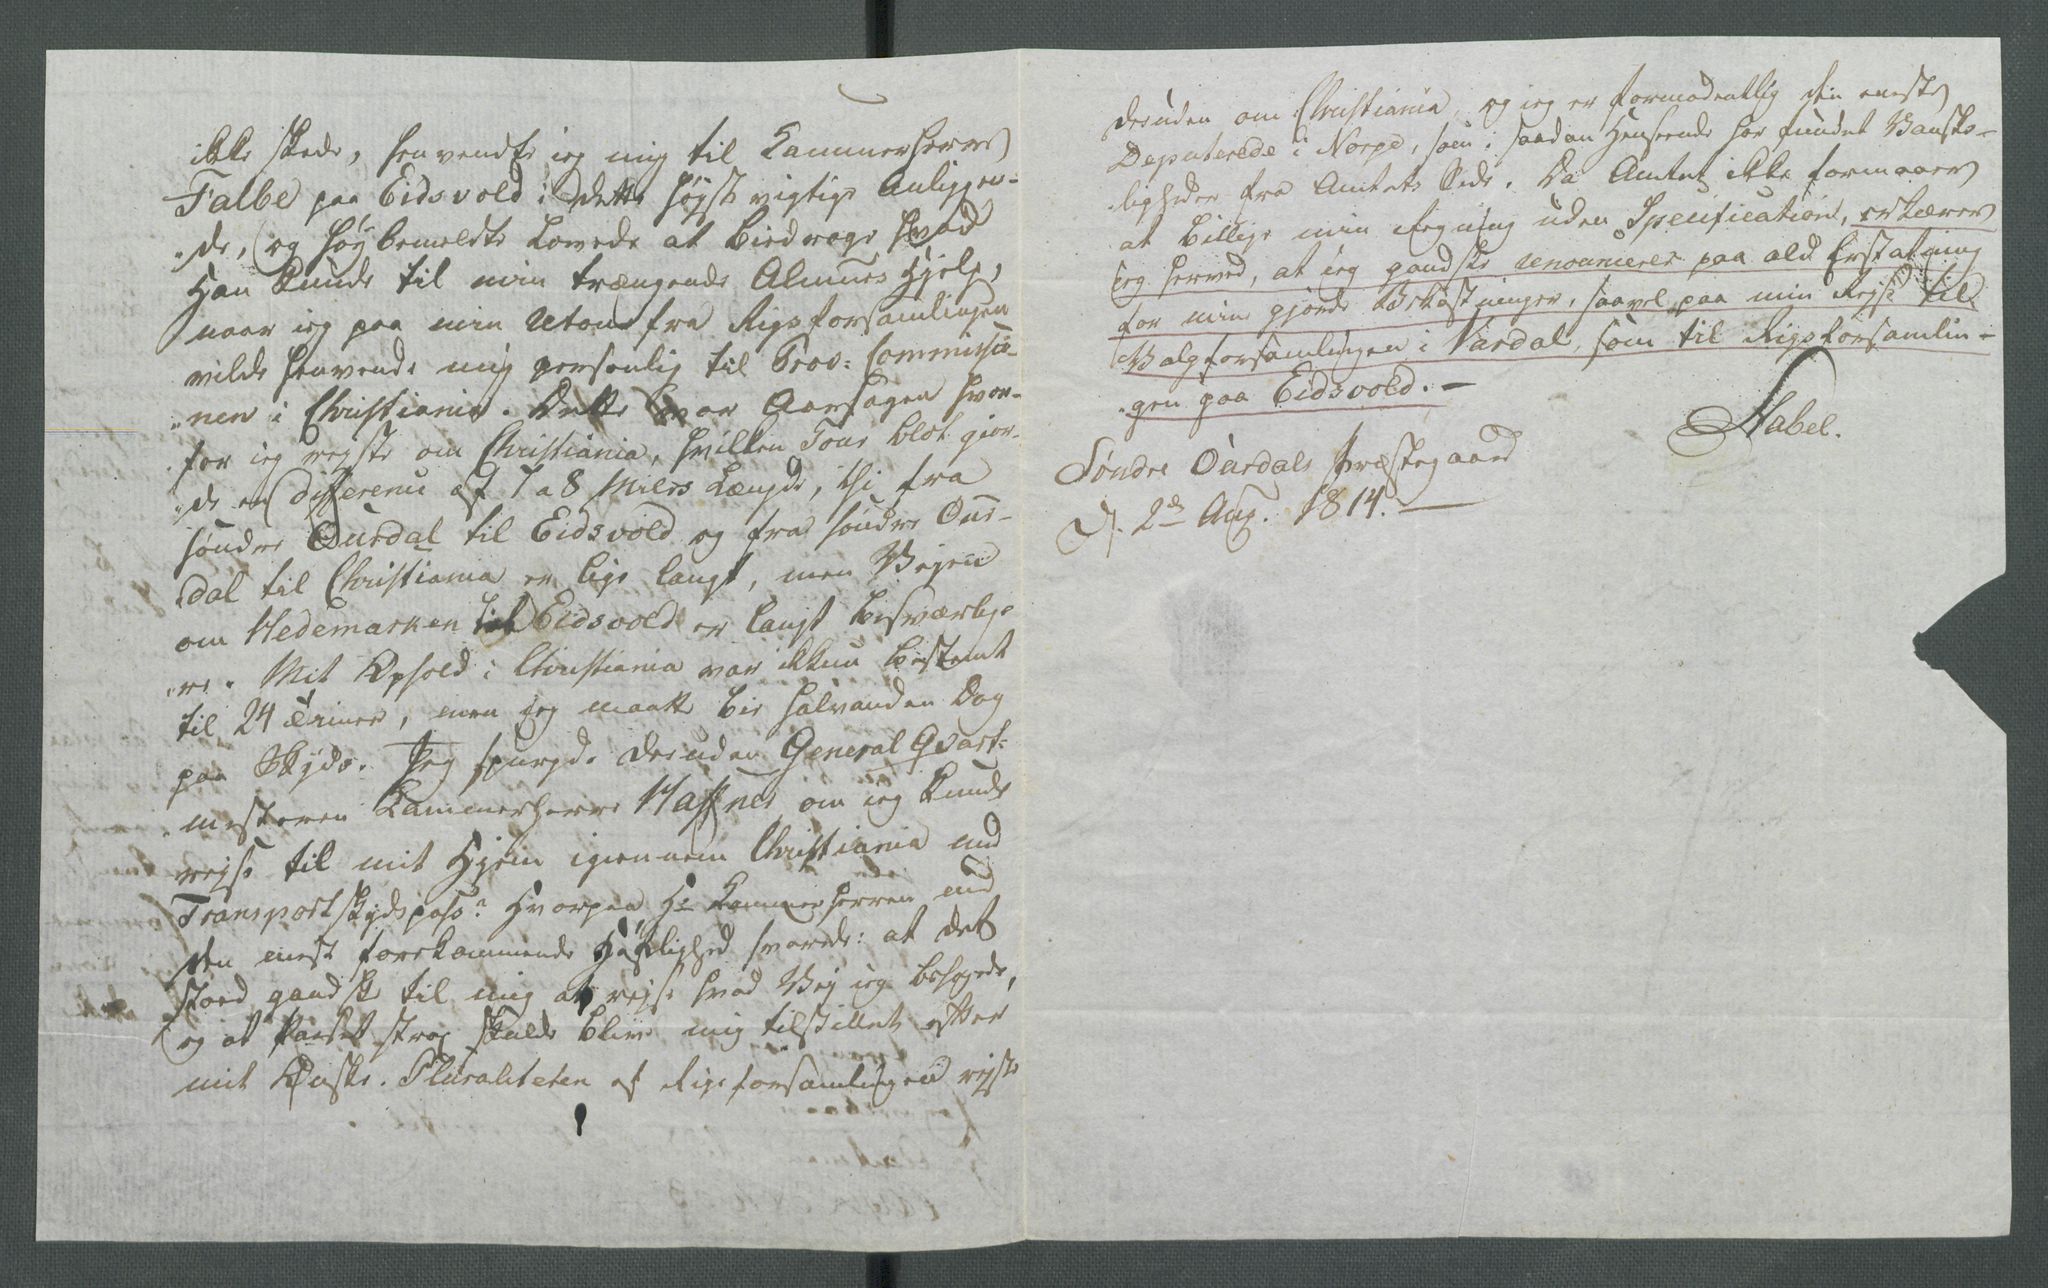 ikke skede, henvendte jeg mig til Kammerherre
Falbe paa Eidsvold i dette højst vigtige Anliggen-
„de, og høybemeldte lovede at bidrage hvad
Han kunde til min trængende Almues Hjelp,
naar jeg paa min Retour fra Rigsforsamlingen
vilde henvende mig personlig til Prov: Commissio-
„nen i Christiania. Dette var Aarsagen hvor-
for jeg rejste om Christiania, hvilken Tour blot gior-
„de en Differense af 7 a 8 Miles Længde, thi fra
søndre Ourdal til Eidsvold og fra søndre Our-
dal til Christiania er lige langt, men Vejen
om Hedemarken til Eidsvold er langt besværlige
„re. Mit Ophold i Christiania var ikkun bestemt
til 24 Timer, men jeg maatte bie halvanden Dag
paa Skyds. Jeg spurgde desuden General Qvart-
„mesteren Kammerherre Haffner om jeg kunde
rejse til mit Hjem igiennem Christiania med
Transportskydspass? Hvorpaa Hr Kammerherren med
den mest forekommende Høflighed svarede: at det
stoed gandske til mig at rejse hvad Vej jeg behagede,
og at Passet strax skulde blive mig tilstillet efter
mit Ønske. Pluraliteten af Rigsforsamlingen rejste
desuden om Christiania, og jeg er formodentlig den eneste
Deputerede i Norge, som i saadan Henseende har fundet Vanske-
„ligheder fra Amtets Side. Da Amtet ikke formaaer
at billige min Regning uden Specification, erklærer
jeg herved, at jeg gandske renouncerer paa ald Erstatning
for mine gjorde Bekostninger, saavel paa min Rejse til
Valgforsamlingen i Vardal, som til Rigsforsamlin-
„gen paa Eidsvold.—
Stabel.
Søndre Ourdals Præstegaard
d. 2de Aug. 1814.